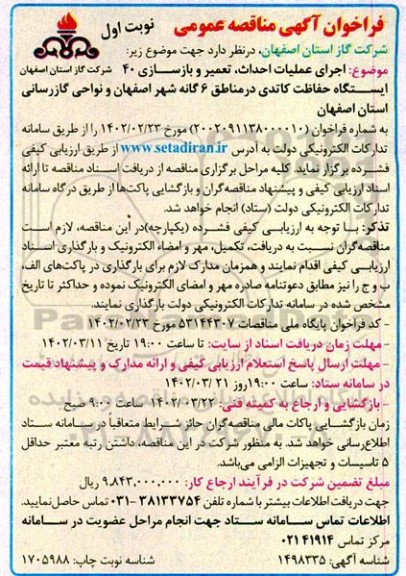 فراخوان آگهی مناقصه عمومی
نوبت اول
شرکت گاز استان اصفهان
شرکت گاز استان اصفهان، درنظر دارد جهت موضوع زیر:
موضوع: اجرای عملیات احداث، تعمیر و بازسازی ۴۰
ایستگاه حفاظت کاتدی درمناطق ۶ گانه شهر اصفهان و نواحی گازرسانی
استان اصفهان
به شماره فراخوان (۲۰۰۲۰۹۱۱۳۸۰۰۰۰۱۰) مورخ ۱۴۰۲/۰۲/۲۳ را از طریق سامانه
تدارکات الکترونیکی دولت به آدرس www.setadiran.ir از طریق ارزیابی کیفی
فشرده برگزار نماید. کلیه مراحل برگزاری مناقصه از دریافت اسناد مناقصه تا ارائه
اسناد ارزیابی کیفی و پیشنهاد مناقصه گران و بازگشایی پاکت‌ها از طریق درگاه سامانه
تدارکات الکترونیکی دولت (ستاد) انجام خواهد شد.
تذکر: با توجه به ارزیابی کیفی فشرده (یکپارچه)در این مناقصه، لازم است
مناقصه‌گران نسبت به دریافت، تکمیل، مهر و امضاء الکترونیک و بارگذاری اسناد
ارزیابی کیفی اقدام نمایند و همزمان مدارک لازم برای بارگذاری در پاکت‌های الف،
ب و ج را نیز مطابق دعوتنامه صادره مهر و امضای الکترونیک نموده و حداکثر تا تاریخ
مشخص شده در سامانه تدارکات الکترونیکی دولت بارگذاری نمایند.
- کد فراخوان پایگاه ملی مناقصات: ۵۳۱۴۴۳۰۷ مورخ ۱۴۰۲/۰۲/۲۳
- مهلت زمان دریافت اسناد از سایت: تا ساعت ۱۹:۰۰ تاریخ ۱۴۰۲/۰۳/۱۱
- مهلت ارسال پاسخ استعلام ارزیابی کیفی و ارائه مدارک و پیشنهاد قیمت
در سامانه ستاد: ساعت ۱۹:۰۰ روز ۱۴۰۲/۰۳/۲۱
- بازگشایی و ارجاع به کمیته فنی: ۱۴۰۲/۰۳/۲۲ ساعت ۹:۰۰ صبح
زمان بازگشایی پاکات مالی مناقصه‌گران حائز شرایط متعاقبا در سامانه ستاد
اطلاع‌رسانی خواهد شد. به منظور شرکت در این مناقصه، داشتن رتبه معتبر حداقل
۵ تاسیسات و تجهیزات الزامی می‌باشد.
مبلغ تضمین شرکت در فرآیند ارجاع کار: ۹.۸۴۳.۰۰۰.۰۰۰ ریال
جهت دریافت اطلاعات بیشتر با شماره تلفن ۳۸۱۳۳۷۵۴-۰۳۱ تماس حاصل نمایید.
اطلاعات تماس سامانه ستاد جهت انجام مراحل عضویت در سامانه
مرکز تماس ۰۲۱۴۱۹۱۴
شناسه آگهی: ۱۴۹۸۳۳۵
شناسه نوبت چاپ: ۱۷۰۵۹۸۸